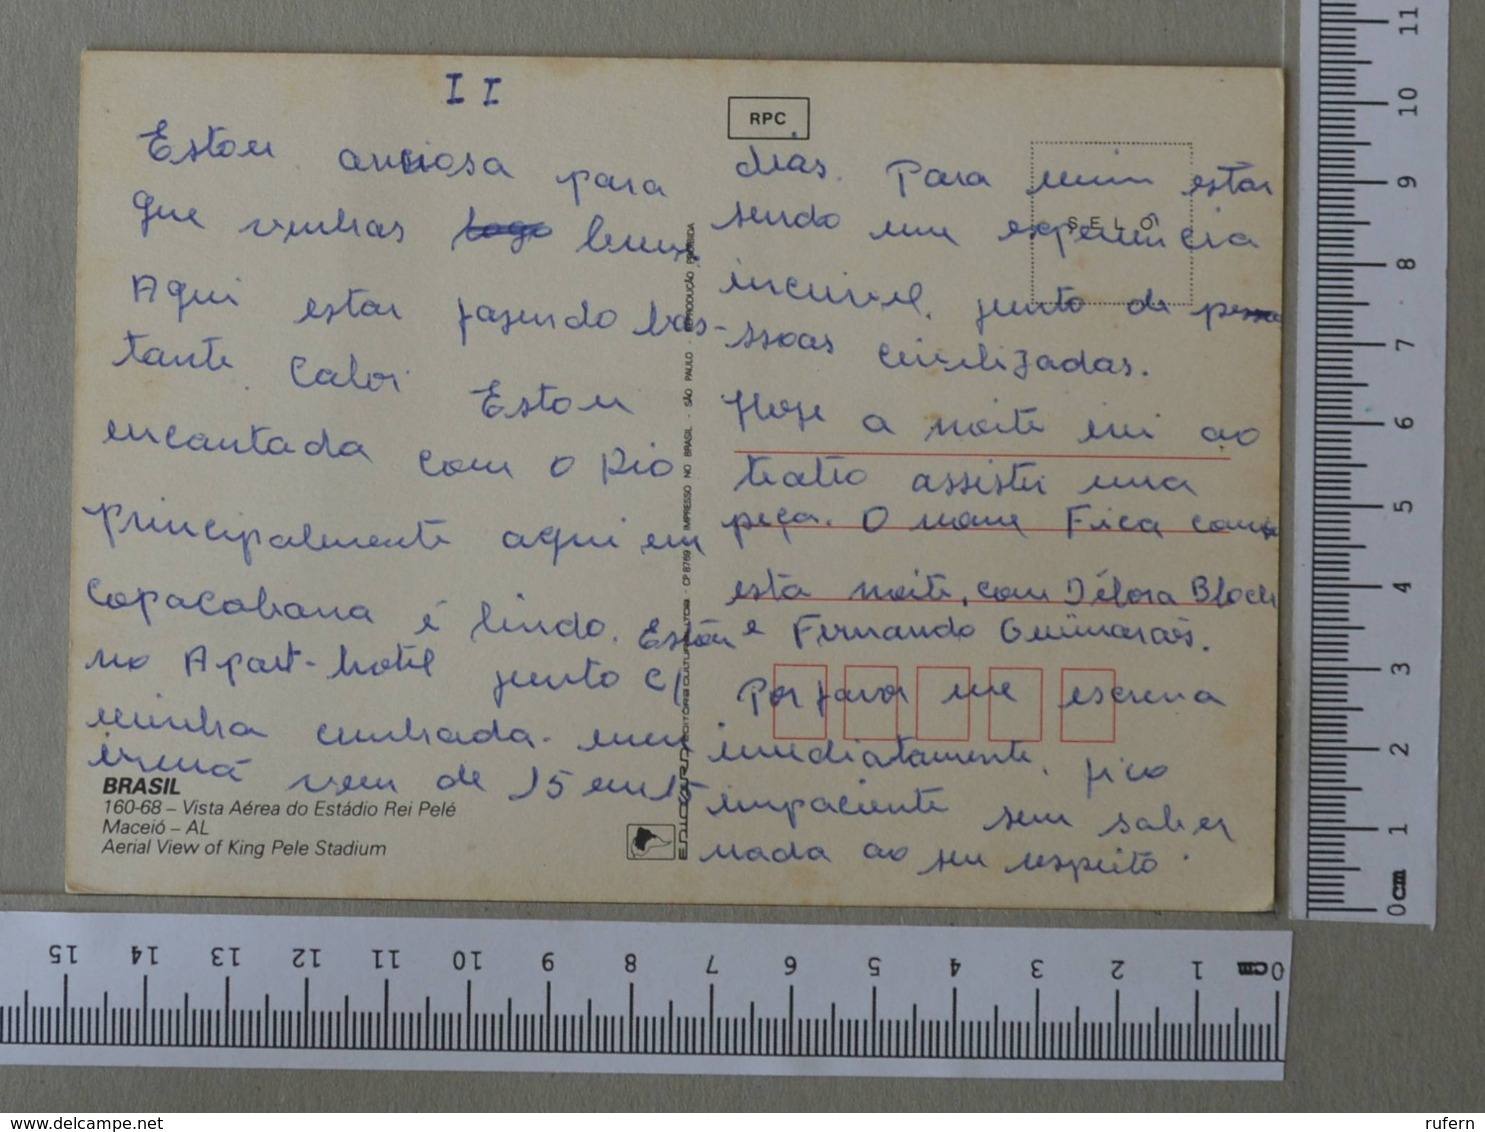 II
Estou anciosa para
que venhas logo
Aqui estar fazendo bas-
tante calor Estou
encantada com o Rio
principalmente aqui em
Copacabana é lindo. Estou
no Apart-hotel junto c/
minha cunhada. meu
irmã vem de 15 em 15
BRASIL
160-68 – Vista Aérea do Estádio Rei Pelé
Maceió – AL
Aerial View of King Pele Stadium
EDITORA CULTURAL LTDA - CP 8769 IMPRESSO NO BRASIL - SÃO PAULO - REPRODUÇÃO PROIBIDA
RPC
SELO
dias. Para mim estar
sendo uma experiência
incrivel, junto de pe
ssoas civilizadas.
Hoje a noite irei ao
teatro assistir uma
peça. O nome Fica comigo
esta noite, com Débora Bloch
e Fernando Guimarães.
Por favor me escreva
imediatamente, fico
impaciente sem saber
nada ao seu respeito.
0cm 1 2 3 4 5 6 7 8 9 10 11
0cm 1 2 3 4 5 6 7 8 9 10 11 12 13 14 15
www.delcampe.net
rufern